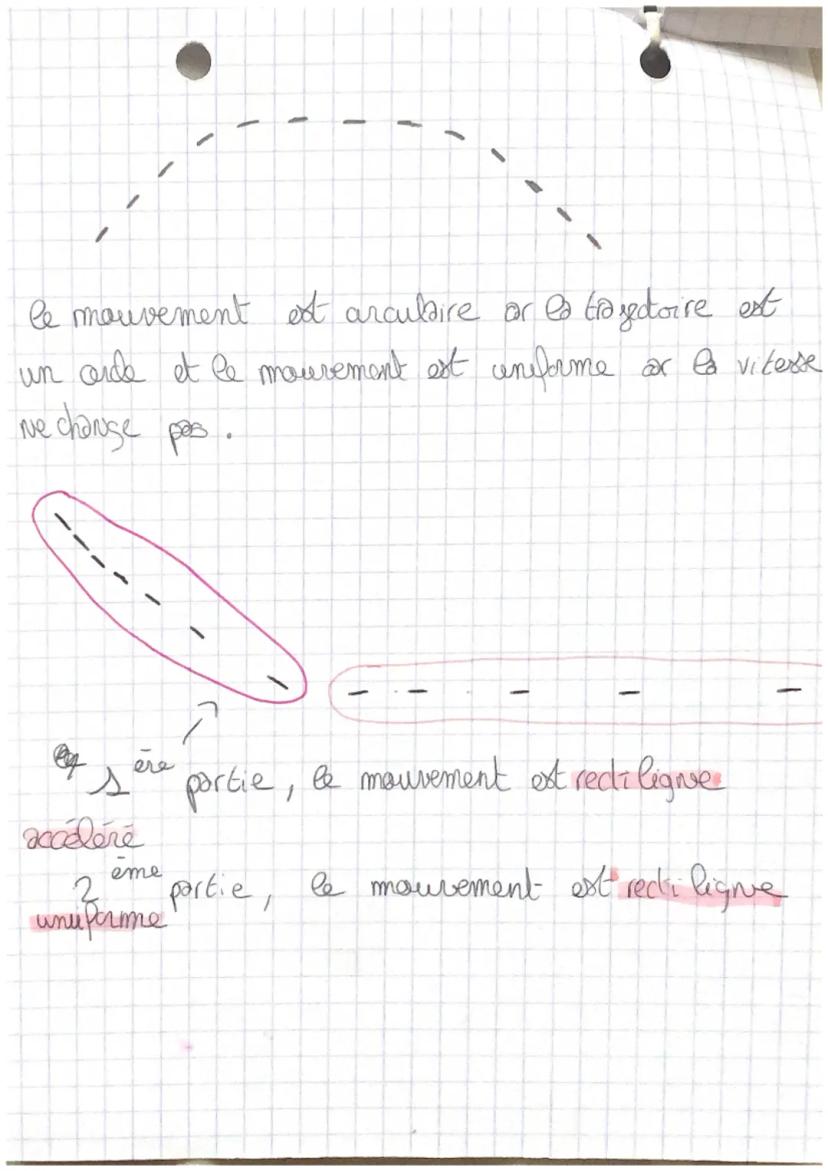 le mouvement est circulaire car la trajectoire est
un cercle et le mouvement est uniforme car la vitesse
ne change pas.
1ère partie, le mouvement est rectiligne
accéléré
2ème partie, le mouvement est rectiligne
uniforme